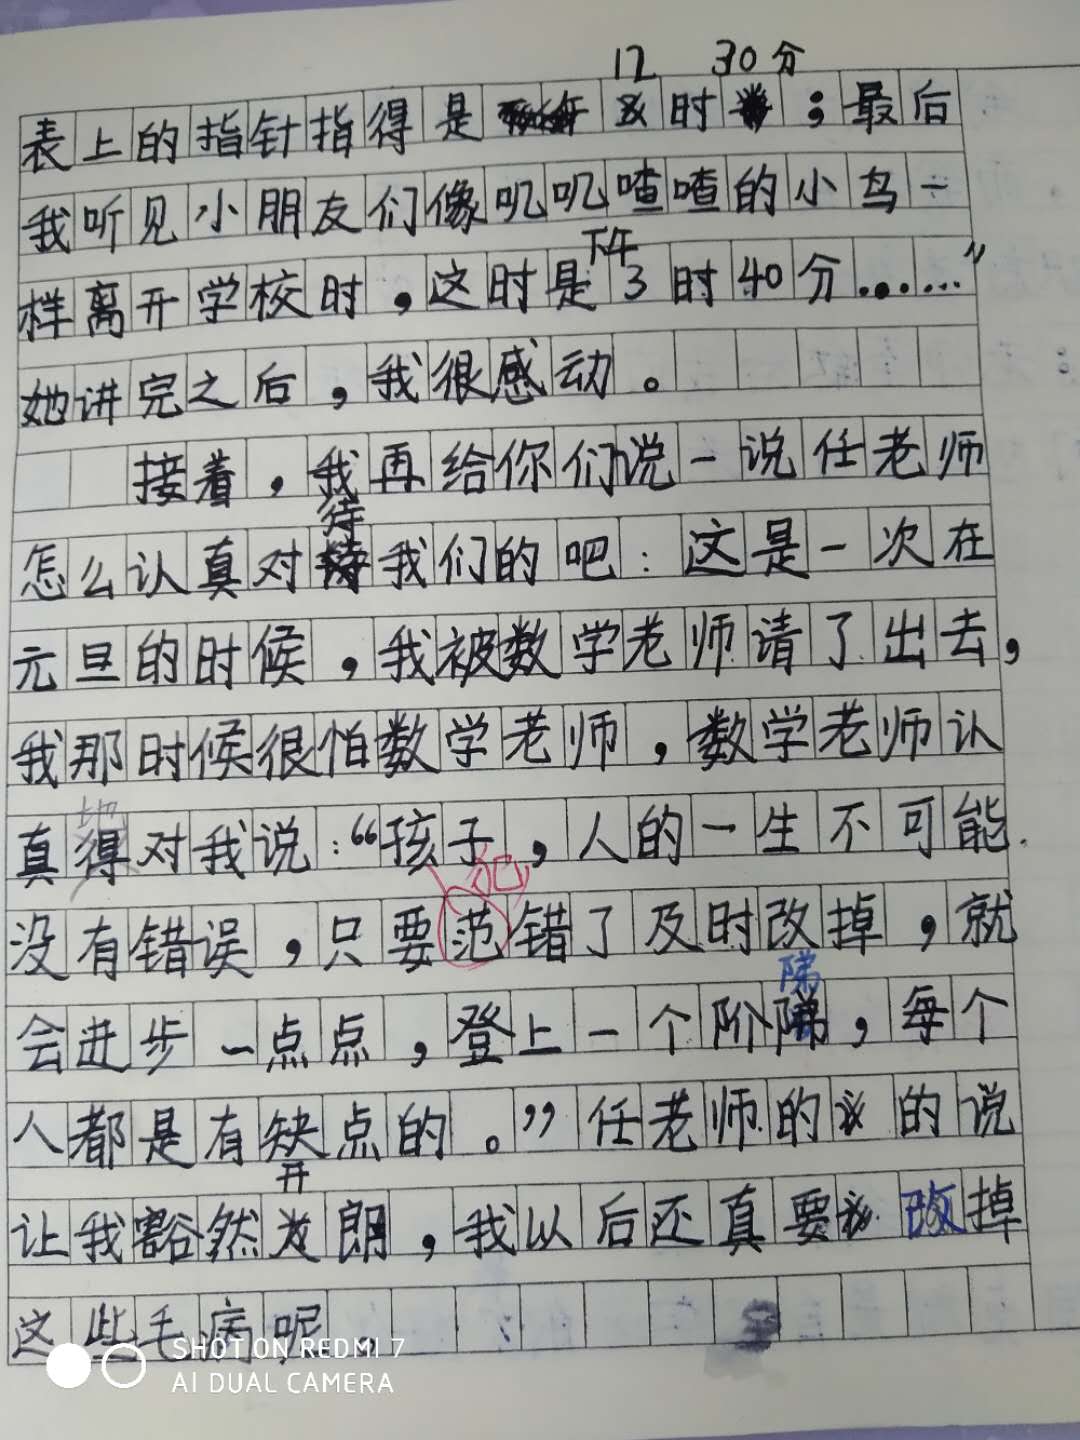 表上的指针指得是12时30分；最后
我听见小朋友们像叽叽喳喳的小鸟一
样离开学校时，这时是下午3时40分……”
她讲完之后，我很感动。
接着，我再给你们说一说任老师
怎么认真对待我们的吧：这是一次在
元旦的时候，我被数学老师请了出去，
我那时候很怕数学老师，数学老师认
真地对我说：“孩子，人的一生不可能
没有错误，只要犯错了及时改掉，就
会进步一点点，登上一个阶梯，每个
人都是有缺点的。”任老师的的说
让我豁然开朗，我以后还真要改掉
这些毛病呢.
SHOT ON REDMI 7
AI DUAL CAMERA